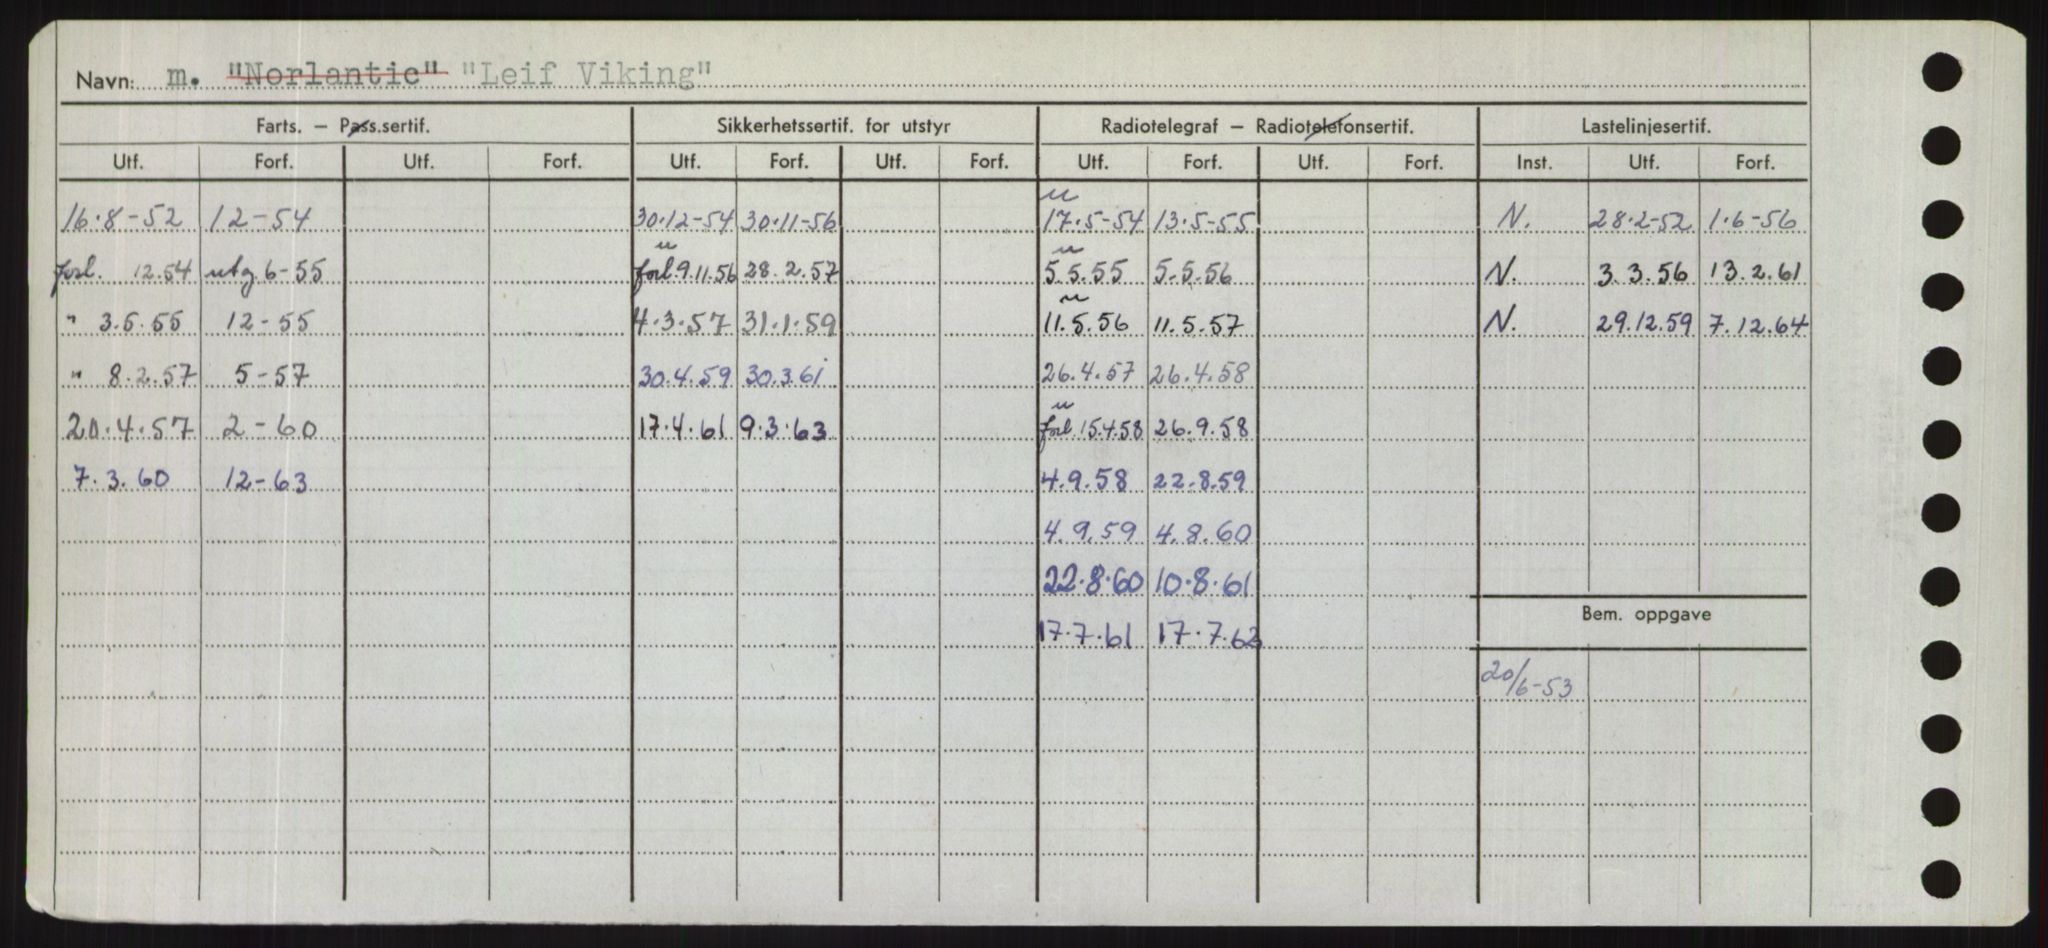 Navn: m. "Norlantic" "Leif Viking"
Farts. – Pass.sertif. Sikkerhetssertif. for utstyr Radiotelegraf – Radiotelefonsertif. Lastelinjesertif.
Utf. Forf. Utf. Forf. Utf. Forf. Utf. Forf. Utf. Forf. Utf. Forf. Inst. Utf. Forf.
16.8-52 12-54 30.12-54 30.11-56 17.5-54 13.5-55 N. 28.2-52 1.6-56
forl. 12.54 utg. 6-55 forl. 9.11.56 28.2.57 5.5.55 5.5.56 N. 3.3.56 13.2.61
" 3.5.55 12-55 4.3.57 31.1.59 11.5.56 11.5.57 N. 29.12.59 7.12.64
" 8.2.57 5-57 30.4.59 30.3.61 26.4.57 26.4.58
20.4.57 2-60 17.4.61 9.3.63 forl. 15.4.58 26.9.58
7.3.60 12-63 4.9.58 22.8.59
4.9.59 4.8.60
22.8.60 10.8.61
Bem. oppgave
17.7.61 17.7.62
20/6-53